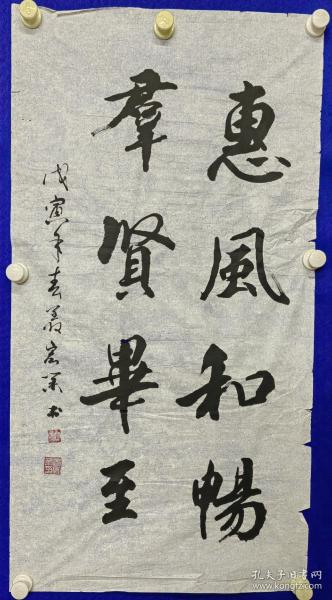 惠風和暢
羣賢畢至
戊寅年春
孔夫子旧书网
www.kongfz.com